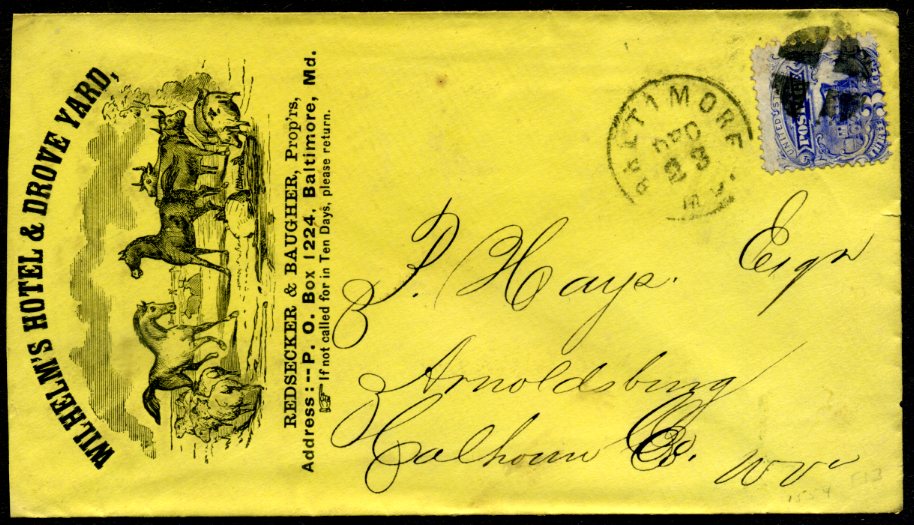 WILHELM'S HOTEL & DROVE YARD,
REDSECKER & BAUGHER, Prop'rs,
Address:--P. O. Box 1224, Baltimore, Md.
☞ If not called for in Ten Days, please return.
BALTIMORE
DEC
23
MD.
UNITED STATES
POSTAGE
P. Hays. Esqr
Arnoldsburg
Calhoun Co.
W Va